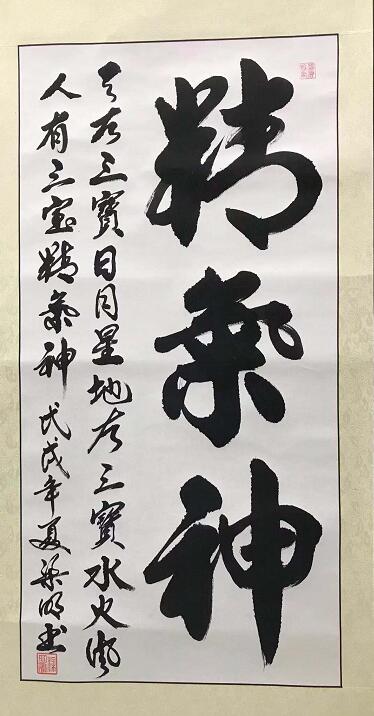 精氣神
天有三寶日月星地有三寶水火風
人有三宝精氣神 戊戌年夏荣明书